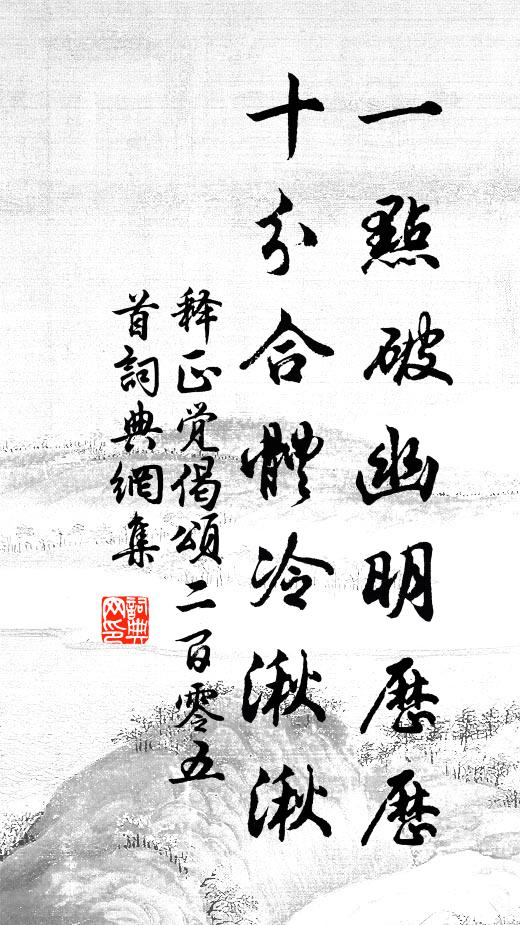 一點破幽明歷歷
十分合體冷湫湫
释正觉偈頌二百零五
首詞典網集
詞典網印